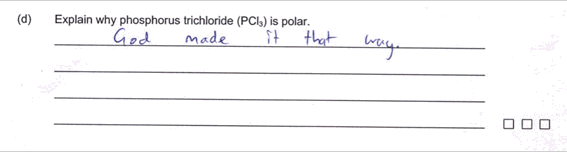 (d) Explain why phosphorus trichloride (PCl₃) is polar.
God made it that way.